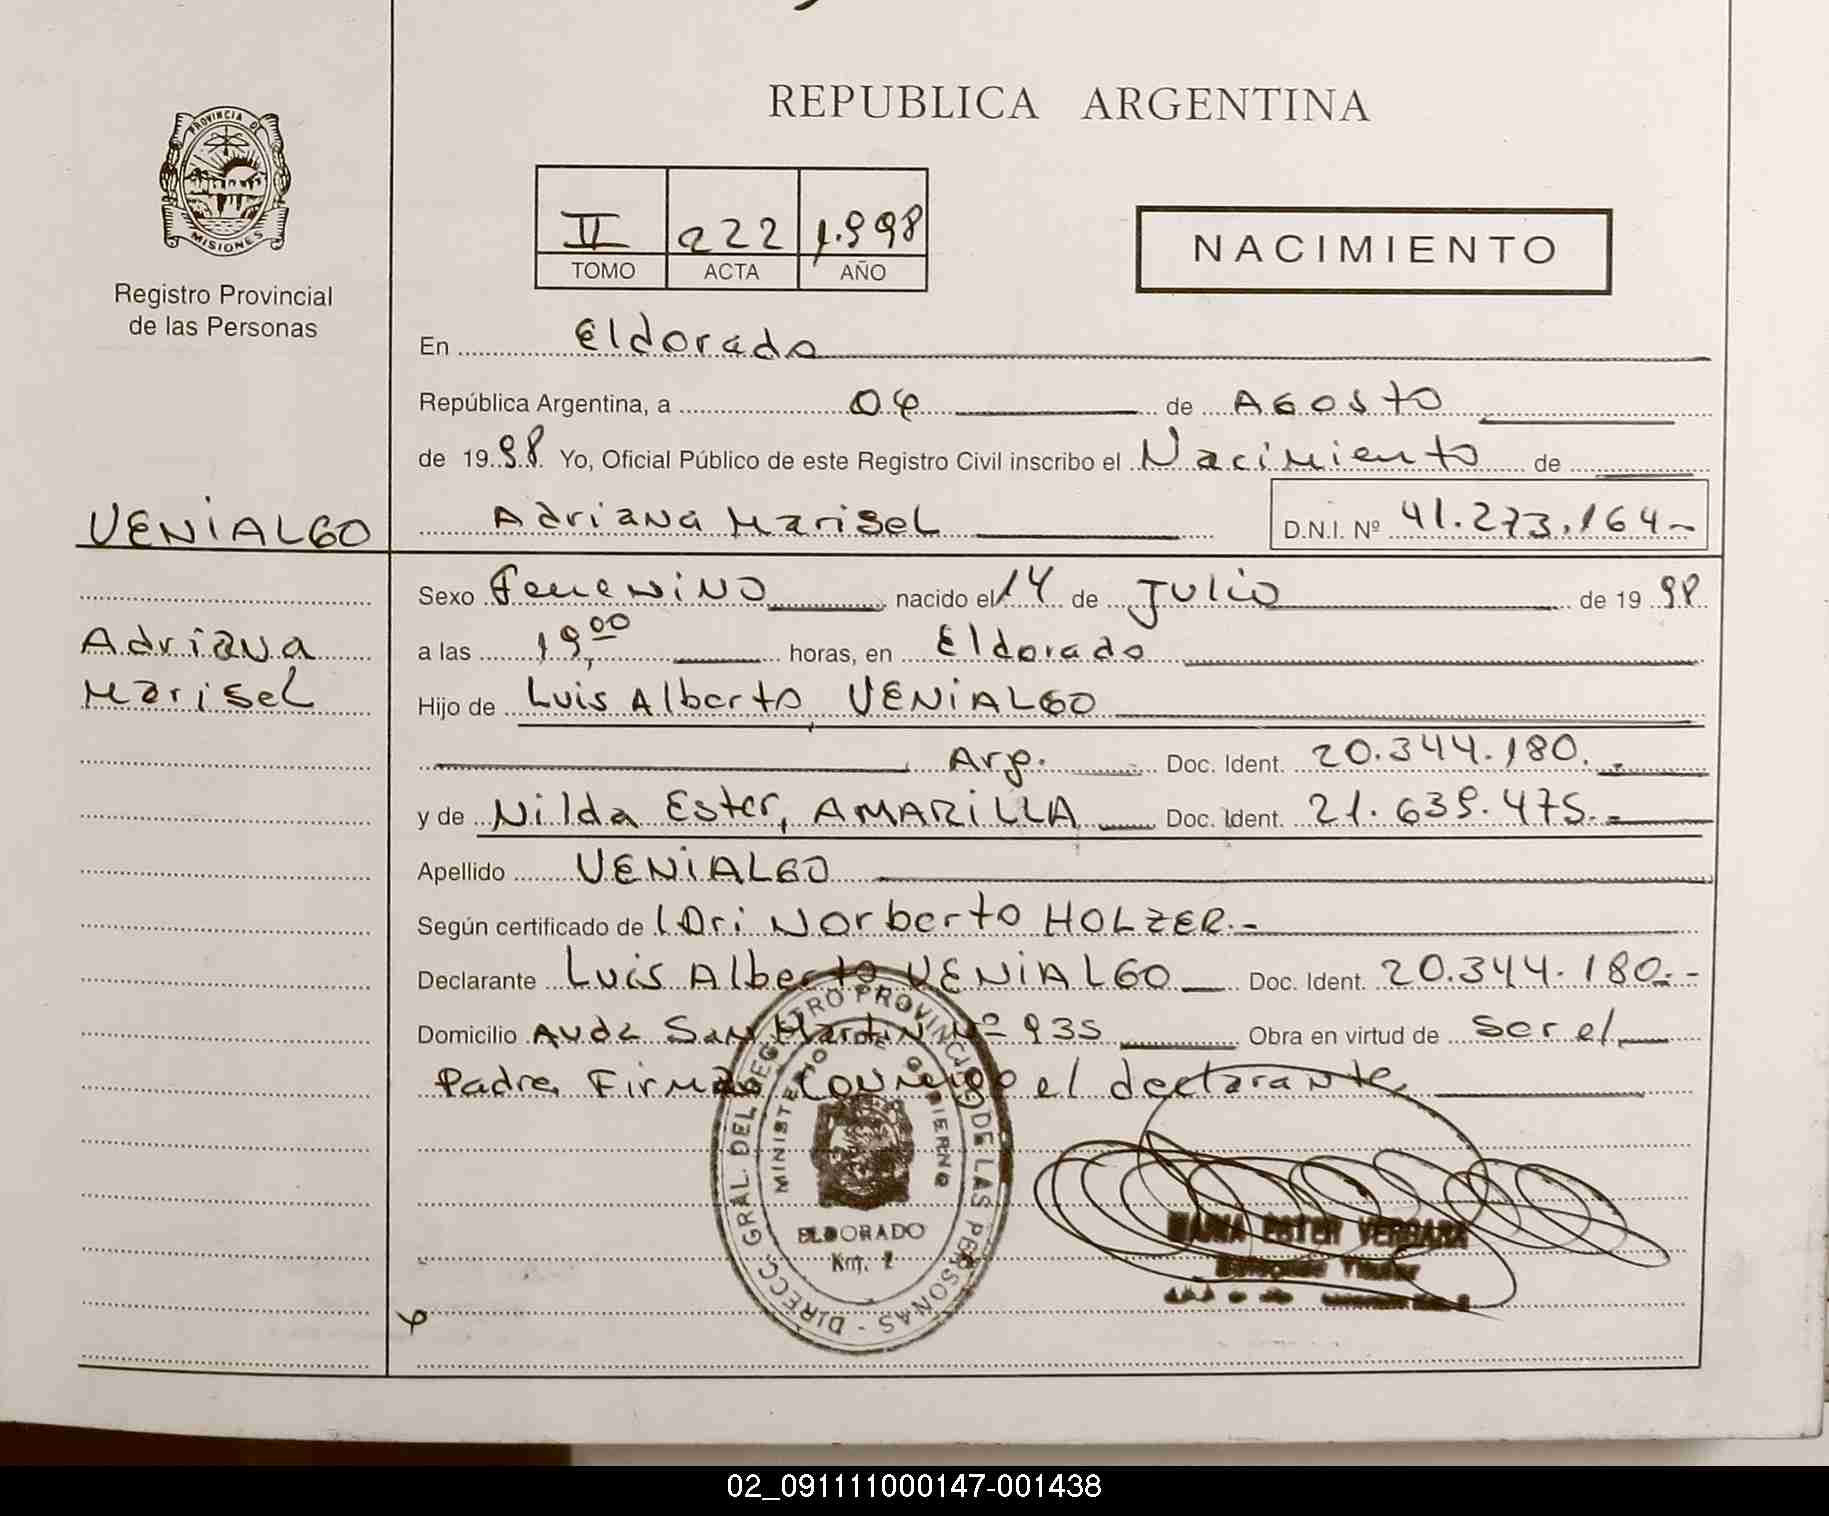 REPUBLICA ARGENTINA
PROVINCIA DE
MISIONES
Registro Provincial
de las Personas
II 222 1.998
TOMO ACTA AÑO
NACIMIENTO
En Eldorado
República Argentina, a 04 de Agosto
de 1998 Yo, Oficial Público de este Registro Civil inscribo el Nacimiento de
VENIALGO
Adriana Marisel D.N.I. Nº 41.273.164.-
Sexo Femenino nacido el 14 de Julio de 1998
Adriana
a las 19,00 horas, en Eldorado
Marisel
Hijo de Luis Alberto, VENIALGO
Arg. Doc. Ident. 20.344.180.-
y de Nilda Ester, AMARILLA Doc. Ident. 21.639.475.-
Apellido VENIALGO
Según certificado de Norberto HOLZER.-
Declarante Luis Alberto VENIALGO Doc. Ident. 20.344.180.-
Domicilio Avda San Martin Nº 935 Obra en virtud de ser el
Padre, Firma Conmigo el declarante,
DIRECC. GRAL. DEL REGISTRO PROVINCIAL DE LAS PERSONAS -
MINISTERIO DE GOBIERNO
ELDORADO
Km. 2
ESTER VERGARA
Titular
02_091111000147-001438